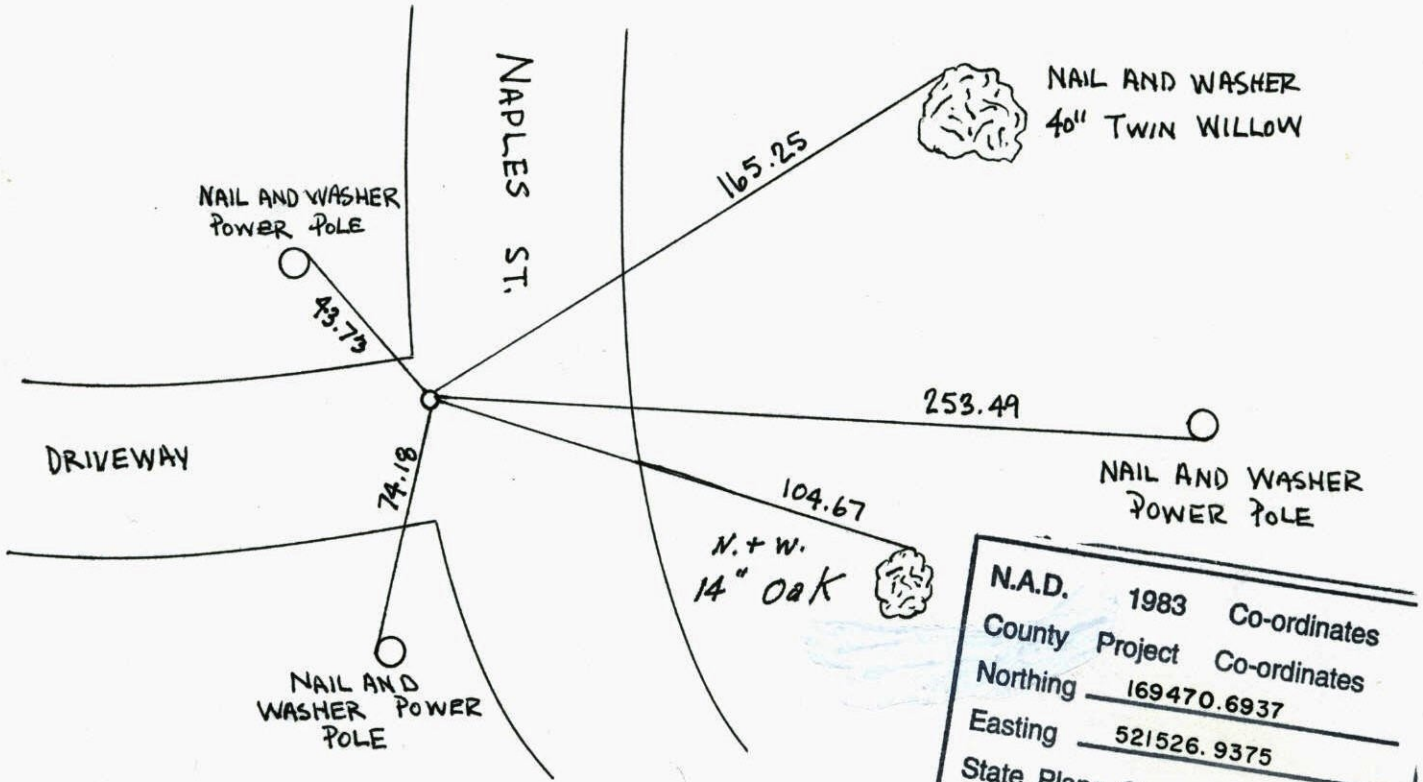 NAPLES ST.
NAIL AND WASHER
40" TWIN WILLOW
165.25
NAIL AND WASHER
POWER POLE
43.73
253.49
NAIL AND WASHER
POWER POLE
DRIVEWAY
74.18
104.67
N. + W.
14" Oak
NAIL AND
WASHER POWER
POLE
N.A.D. 1983 Co-ordinates
County Project Co-ordinates
Northing 169470.6937
Easting 521526.9375
State